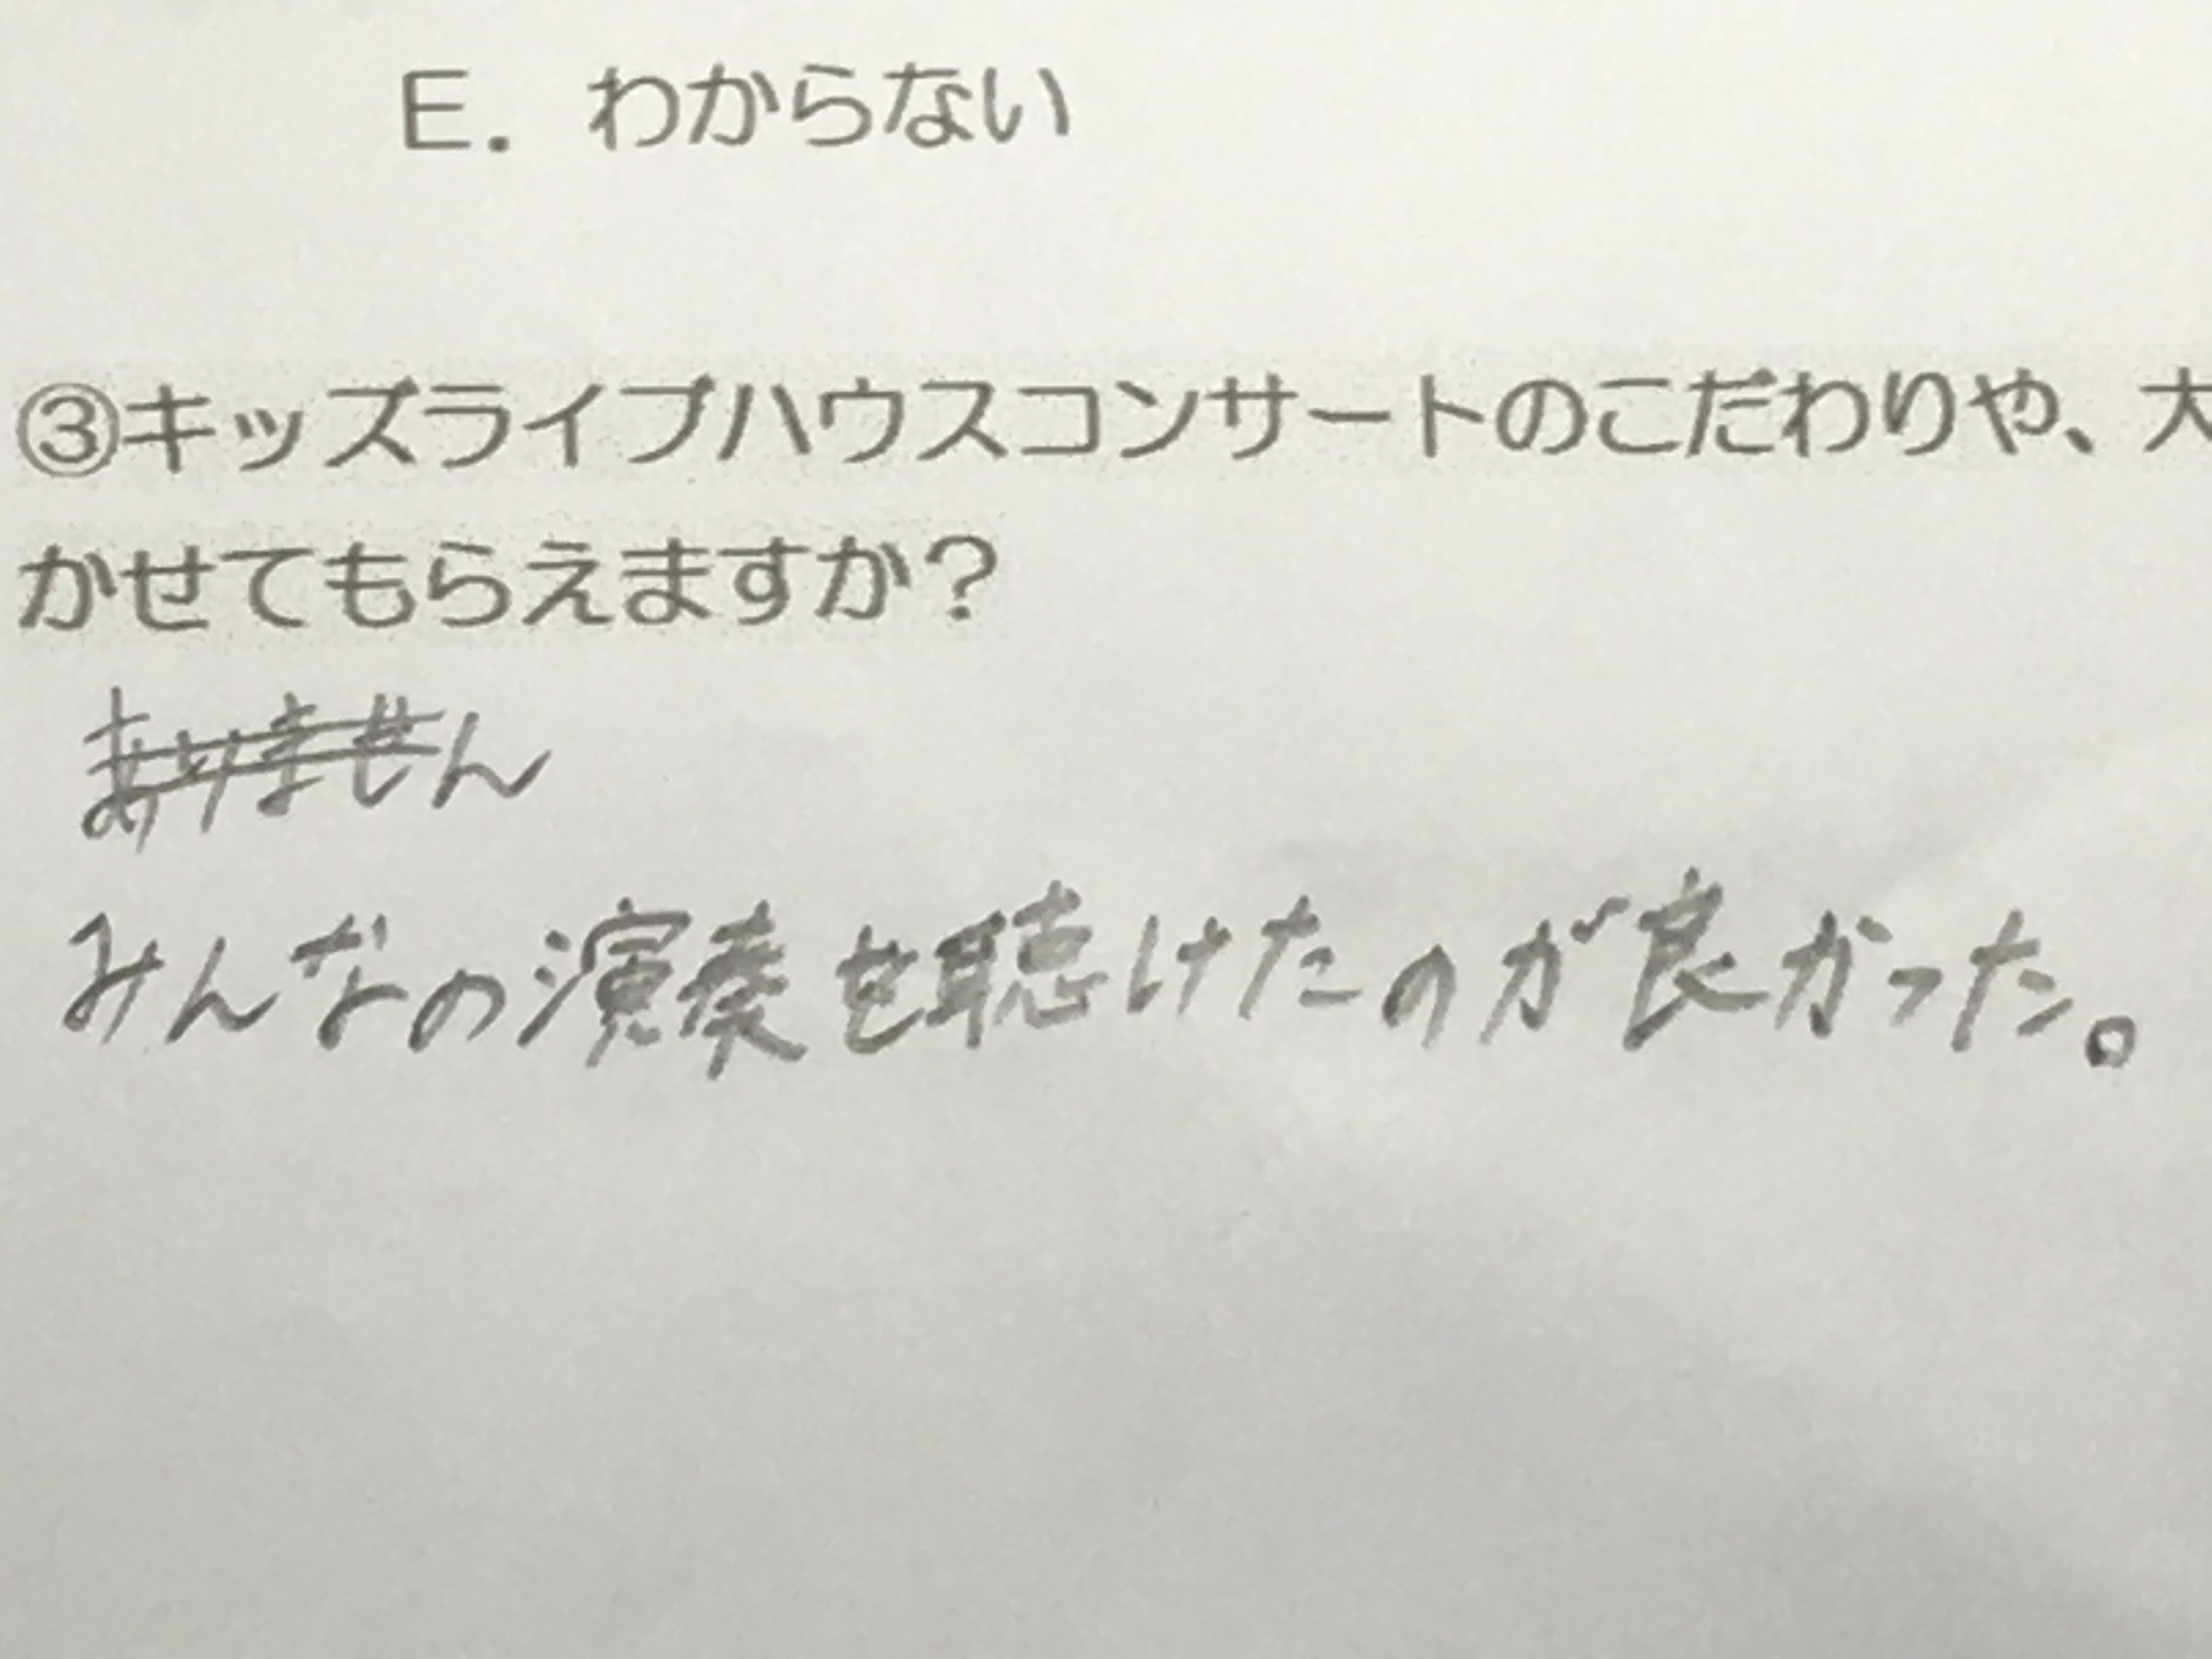 E. わからない
③キッズライブハウスコンサートのこだわりや、大
かせてもらえますか？
ありません
みんなの演奏を聴けたのが良かった。